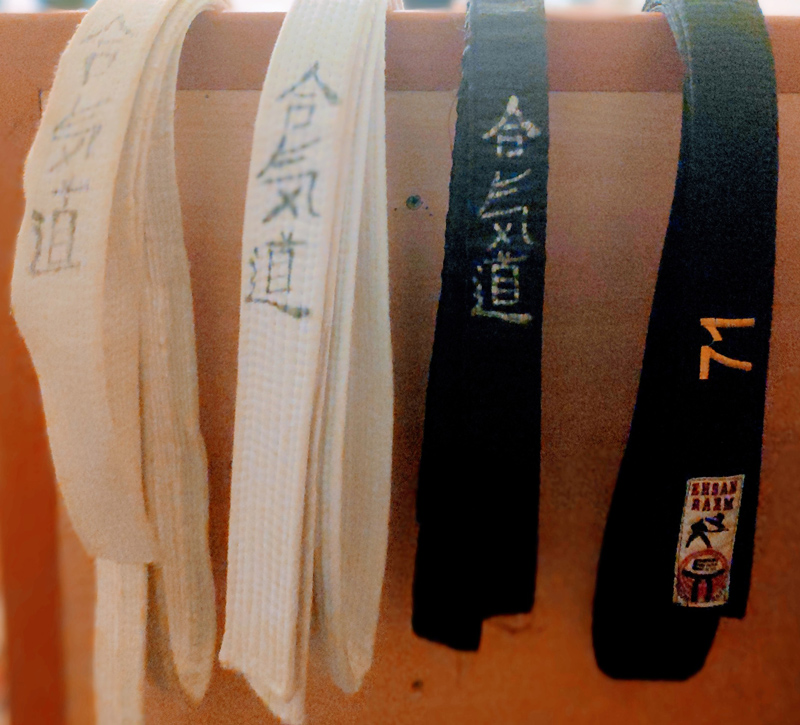 合気道
合気道
合気道
71
EHSAN
RAZM